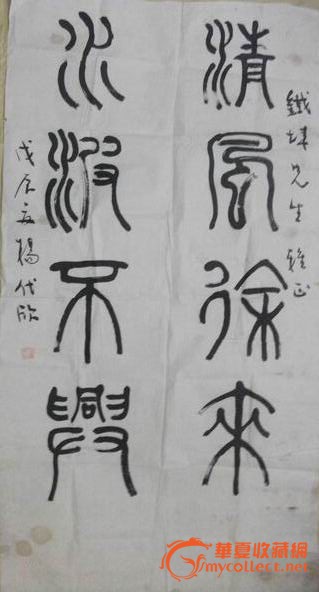 鐵城先生雅正
清風徐來
水波不興
戊辰立楊代欣
華夏收藏網
mycollect.net